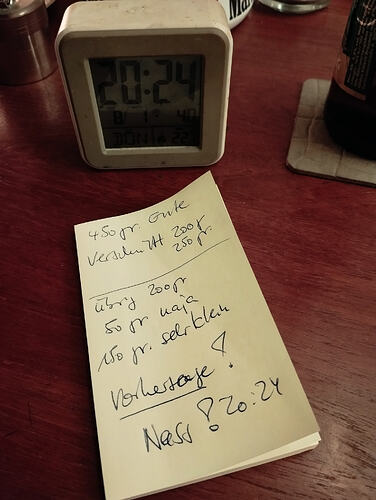 20:24
8 1. 40
DON 22
450 gr. Gute
Verschnitt 200 gr
250 gr.
übrig 200 gr
50 gr naja
150 gr. sehr klein
Vorhersage !
Nass ! 20:24